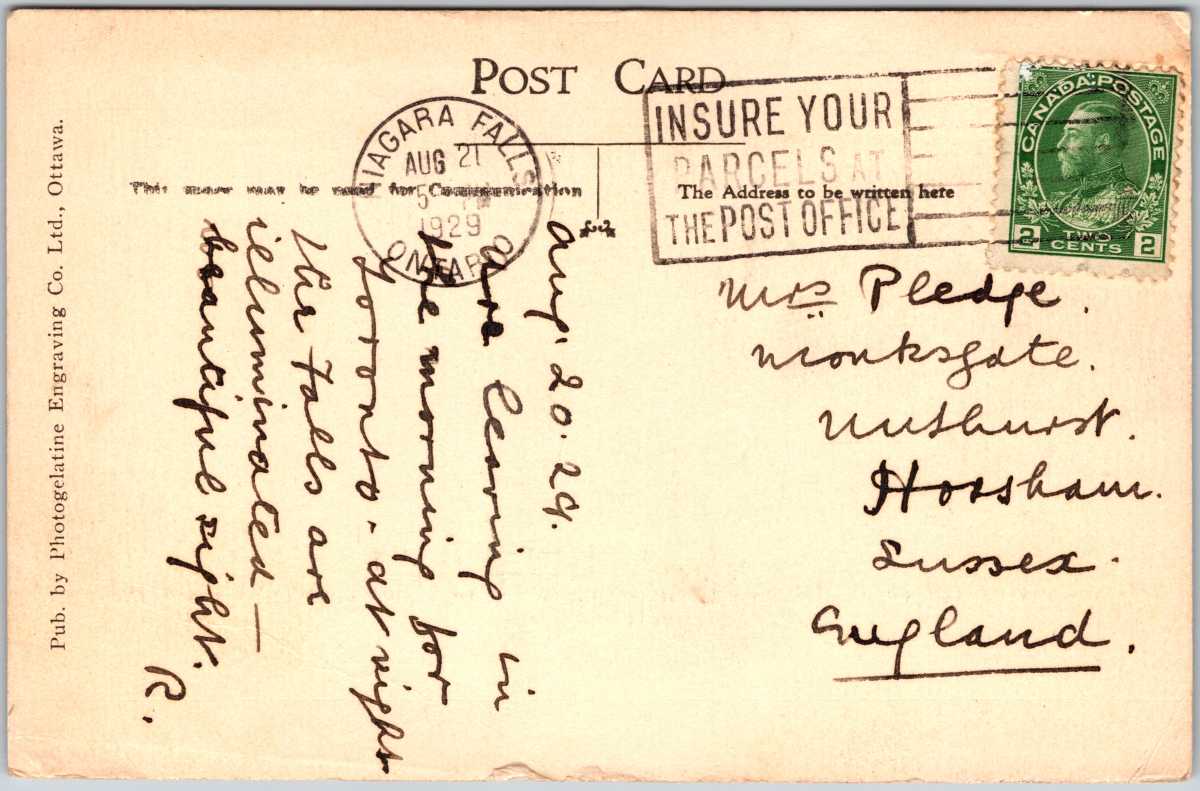 POST CARD
NIAGARA FALLS
AUG 21
5 PM
1929
ONTARIO
INSURE YOUR
PARCELS AT
THE POST OFFICE
CANADA POSTAGE
2 TWO CENTS 2
This space may be used for Communication
The Address to be written here
Pub. by Photogelatine Engraving Co. Ltd., Ottawa.
Aug. 20. 29.
Are leaving in
the morning for
Toronto - at night
the Falls are
illuminated —
beautiful sight.
R.
Mrs Pledge.
Monksgate.
Nuthurst.
Horsham.
Sussex.
England.